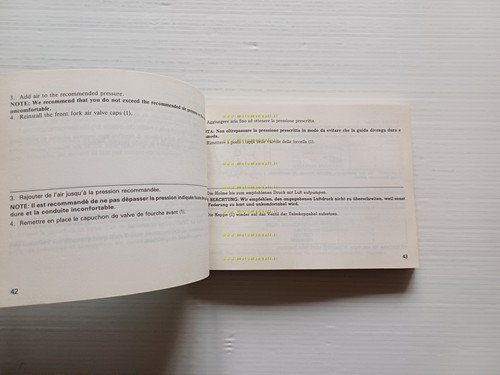 3. Add air to the recommended pressure.
NOTE: We recommend that you do not exceed the recommended air pressure
uncomfortable.
4. Reinstall the front fork air valve caps (1).
3. Rajouter de l'air jusqu'à la pression recommandée.
NOTE: Il est recommandé de ne pas dépasser la pression indiquée
dure et la conduite inconfortable.
4. Remettre en place le capuchon de valve de fourche avant (1).
42
www.motomanuali.it
Aggiungere aria fino ad ottenere la pressione prescritta.
www.motomanuali.it
TA: Non oltrepassare la pressione prescritta in modo da evitare che la guida divenga dura e
moda.
Rimettere a posto i tappi delle valvole della forcella (1).
www.motomanuali.it
www.motomanuali.it
www.motomanuali.it
Die Holme bis zum empfohlenen Druck mit Luft aufpumpen.
BEACHTUNG: Wir empfehlen, den angegebenen Luftdruck nicht zu überschreiten, weil sonst
Federung zu hart und unkomfortabel wird.
www.motomanuali.it
Die Kappe (1) wieder auf das Ventil der Teleskopgabel aufsetzen.
www.motomanuali.it
www.motomanuali.it
43